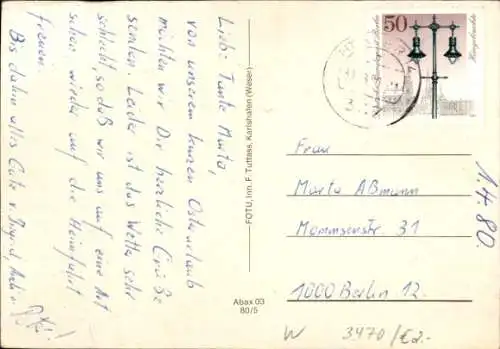 Liebe Tante Marta,
von unserem kurzen Osterurlaub
möchten wir Dir herzliche Grüße
senden. Leider ist das Wetter sehr
schlecht, so daß wir uns auf eine Art
schon wieder auf die Heimfahrt
freuen.
Bis dahin alles Gute v. Sigrid,
FOTU, Inn. F. Tuttass, Karlshafen (Weser)
Abax 03
80/5
50
Deutsche Bundespost Berlin
Hängeleuchte
Frau
Marta Aßmann
Mommsenstr. 31
1000 Berlin 12.
1.4.80.
W 3470/€2.-